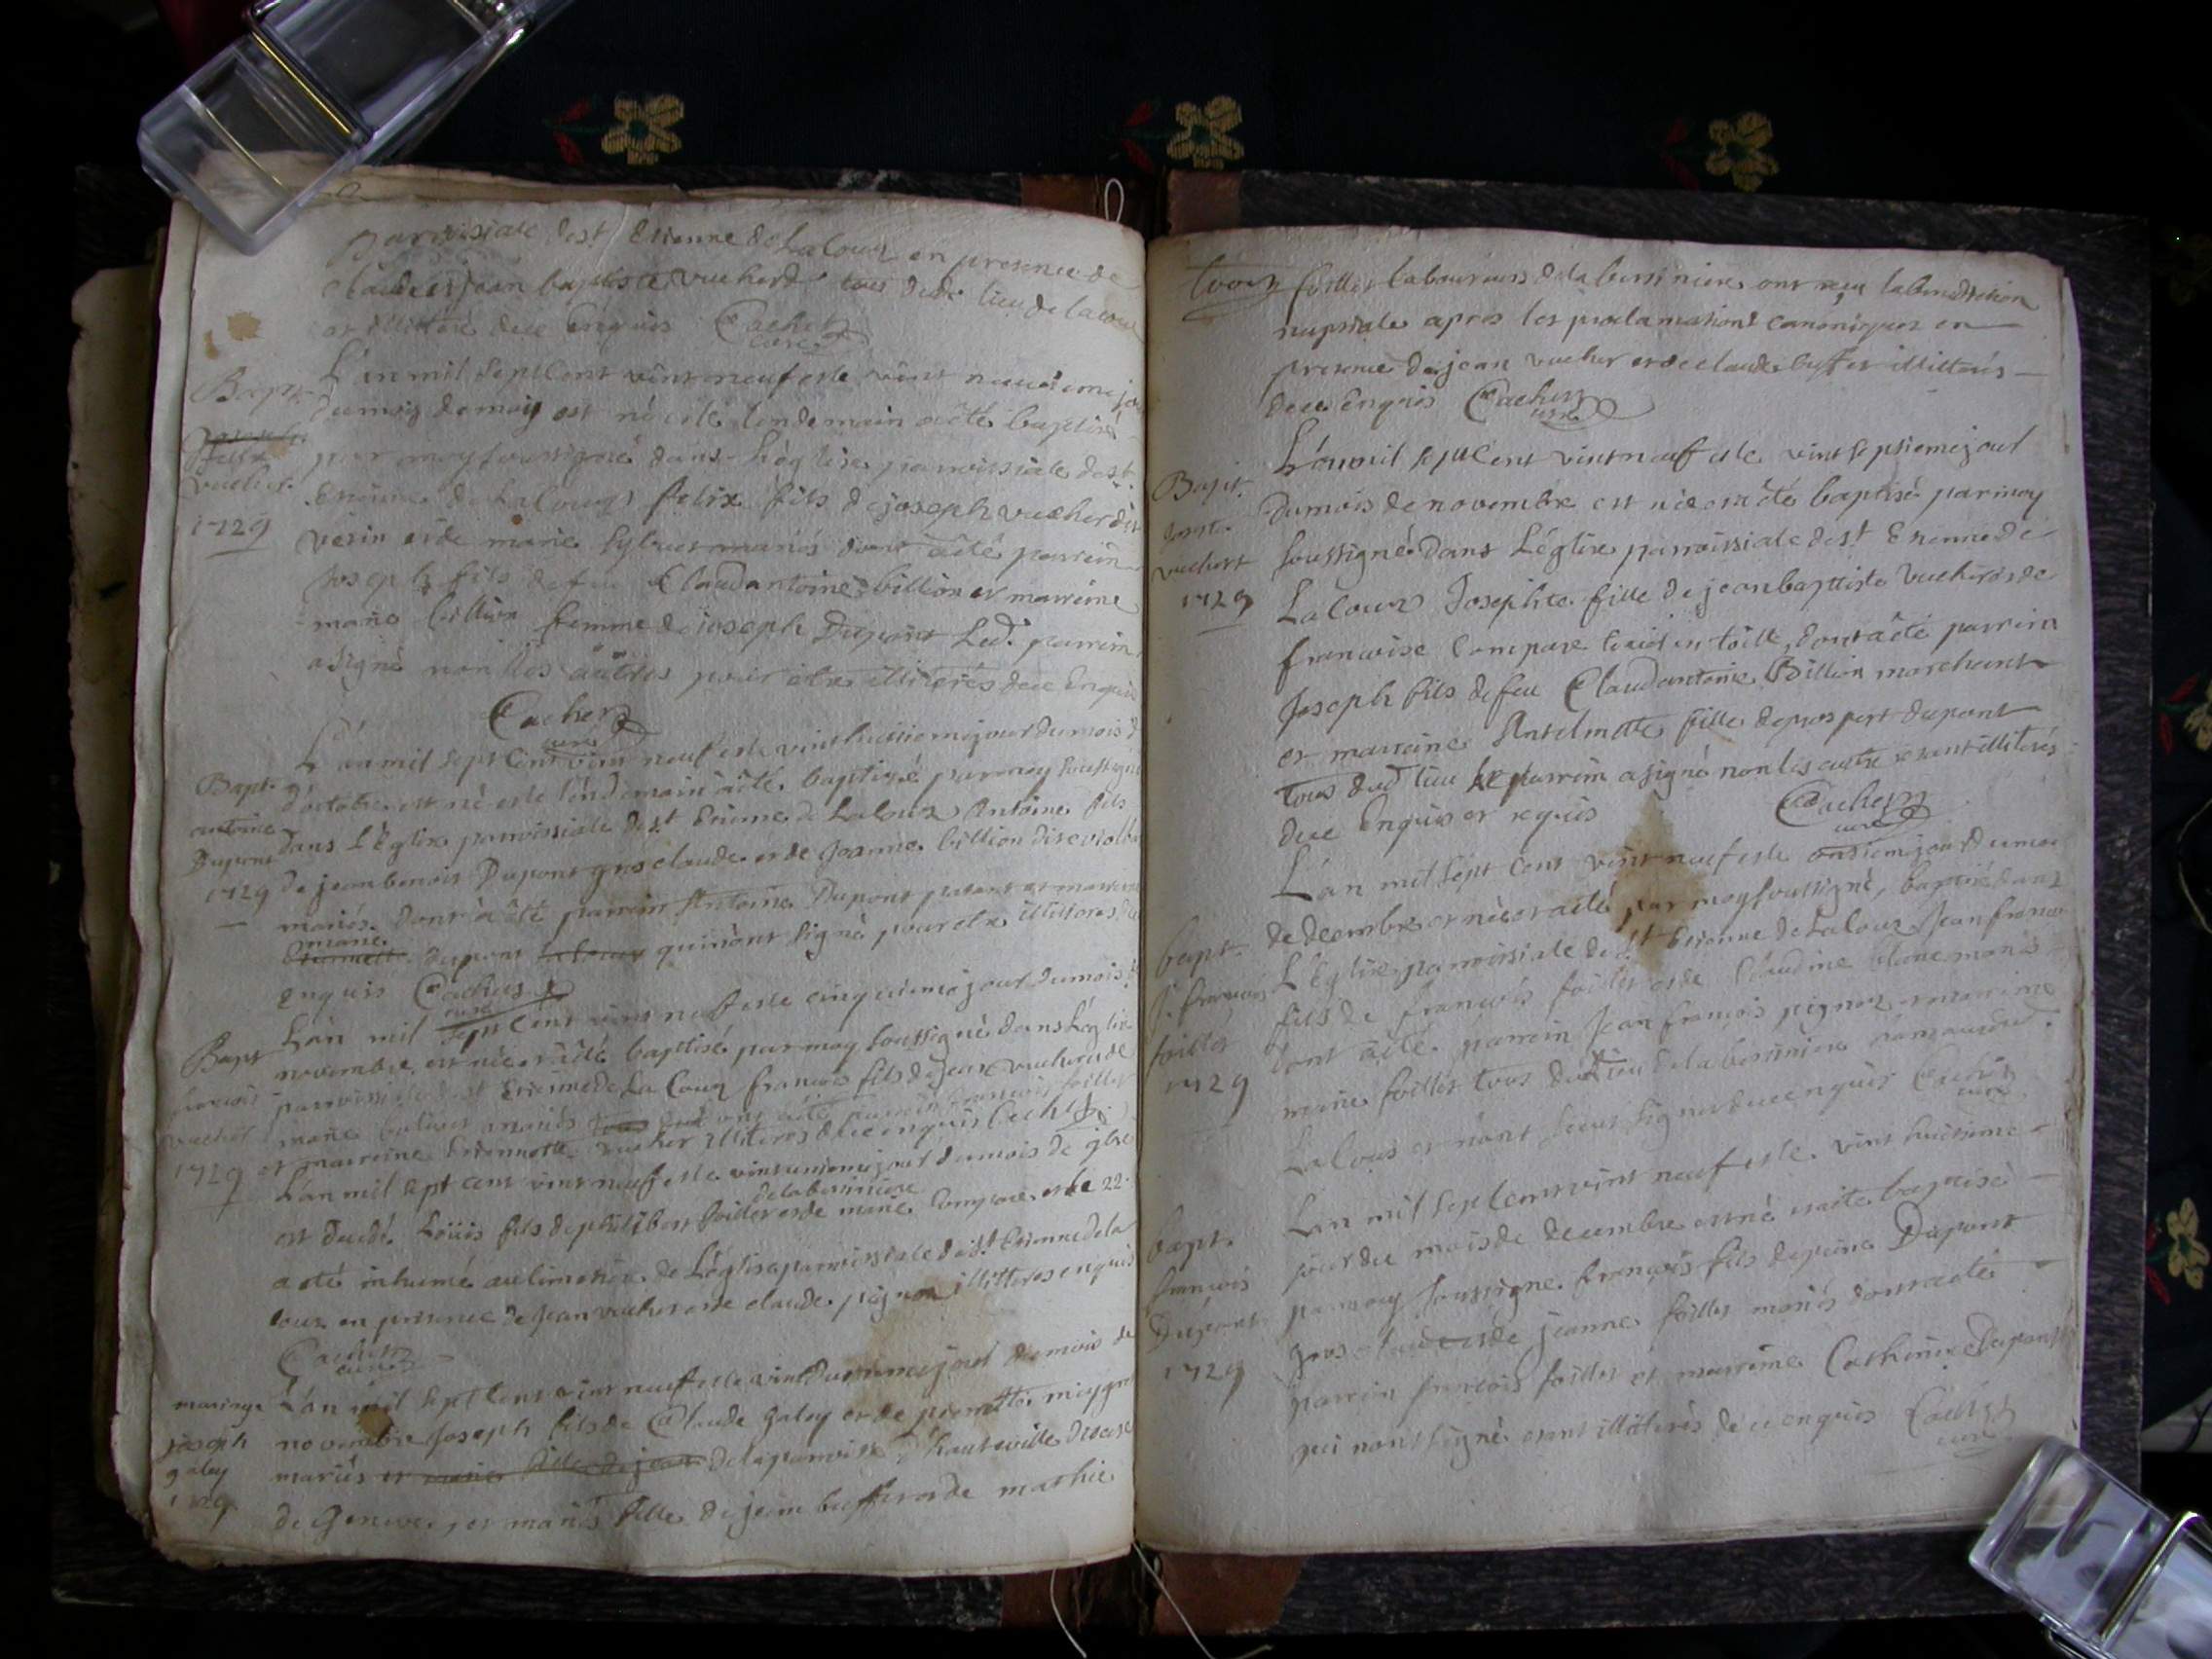 parroisiale de st Etienne de Lalouz en presence de
claude et jean baptiste vucherd tous dudt lieu de
et illitteré de ce Enquis Cachez
curé
Bapt.
felix
vucher
1729
L'an mil sept cent vint neuf et le vint neuvieme jour
du mois de may est né et le lendemain a été baptisé
par moy soussigné dans L'église parroissiale de st
Etienne de Lalouz felix fils de joseph vucher dit
verin et de marie mariés dont a été parrein
joseph fils de feu Claud antoine billion et marreine
marie billion femme de joseph Dupont Led. parrein
a signé non les autres pour etre illiterés de ce Enquis
Cachez
curé
Bapt.
antoine
Dupont
1729
L'an mil sept Cent vint neuf et le vint huitieme jour du mois
d'octobre est né et le lendemain a été baptizé par moy soussigné
dans L'Eglise parroissiale de st Etienne de Lalouz Antoine fils
de jean benoit Dupont gros claude et de Jeanne billion
mariés dont a été parrein Antoine Dupont et marreine
marie
dupont qui n'ont signé pour etre illitteres
enquis Cachez
curé
Bapt
francois
vucher
1729
L'an mil sept Cent vint neuf et le cinquieme jour du mois
novembre est né et a été baptisé par moy soussigné dans L'eglise
parroissiale de st Etienne de La Louz francois fils de Jean vucher et de
marie mariés ont été parrein francois foillet
et marreine Etiennette vucher illiteres de ce enquis Cachez
L'an mil sept cent vint neuf et le vint unieme jour du mois de
de la bessiniere
est decedé Loüis fils de philibert foillet et de marie Compare et le 22
a été inhumé au cimetiere de L'église parroissiale de st Etienne de la
louz en presence de Jean vucher et de claude pignoz illitteres enquis
Cachez
curé
mariage
joseph
galey
1729
L'an mil sept Cent vint neuf et le vint jour du mois de
novembre Joseph fils de Claude Galey et de pernette
mariés et marie fille de jean de la parroisse d'hauteville
de Geneve, et marie fille de jean buffet et de mathie
foillet laboureurs de la bessiniere ont reçu la benediction
nuptiale apres les proclamations canoniques en
presence de jean vucher et de claude buffet illitterés
de ce Enquis Cachez
curé
Bapt.
vucher
1729
L'an mil sept Cent vint neuf et le vint septieme jour
du mois de novembre est née et a été baptisé par moy
soussigné Dans L'église parroissiale de st Etienne de
Lalouz Josephte fille de jean baptiste vucher et de
francoise Compare dont a été parrein
Joseph fils de feu Claud antoine Billion marchant
et marreine Antelmette fille de prospert dupont
tous dudt lieu le parrein a signé non les autre etant illiterés
de ce Enquis et requis Cachez
curé
bapt.
J. francois
foillet
1729
L'an mil sept cent vint neuf et le onzieme jour du mois
de decembre est né et a été par moy soussigné, baptisé dans
L'église parroissiale de st Etienne de Lalouz Jean francois
fils de francois foillet et de Claudine mariés
dont a été parrein Jean françois pignoz et marreine
marie foillet tous dudt lieu de la bessiniere
Lalouz et n'ont sceut signer de ce enquis Cachez
curé
bapt.
francois
Dupont
1729
L'an mil sept cent vint neuf et le vint huitieme
jour du mois de decembre est né et a été baptisé
par moy soussigné francois fils de pierre Dupont
gros claude et de jeanne foillet mariés dont a été
parrein francois foillet et marreine Catherine Dupont
qui n'ont signé etant illitterés de ce enquis Cachez
curé